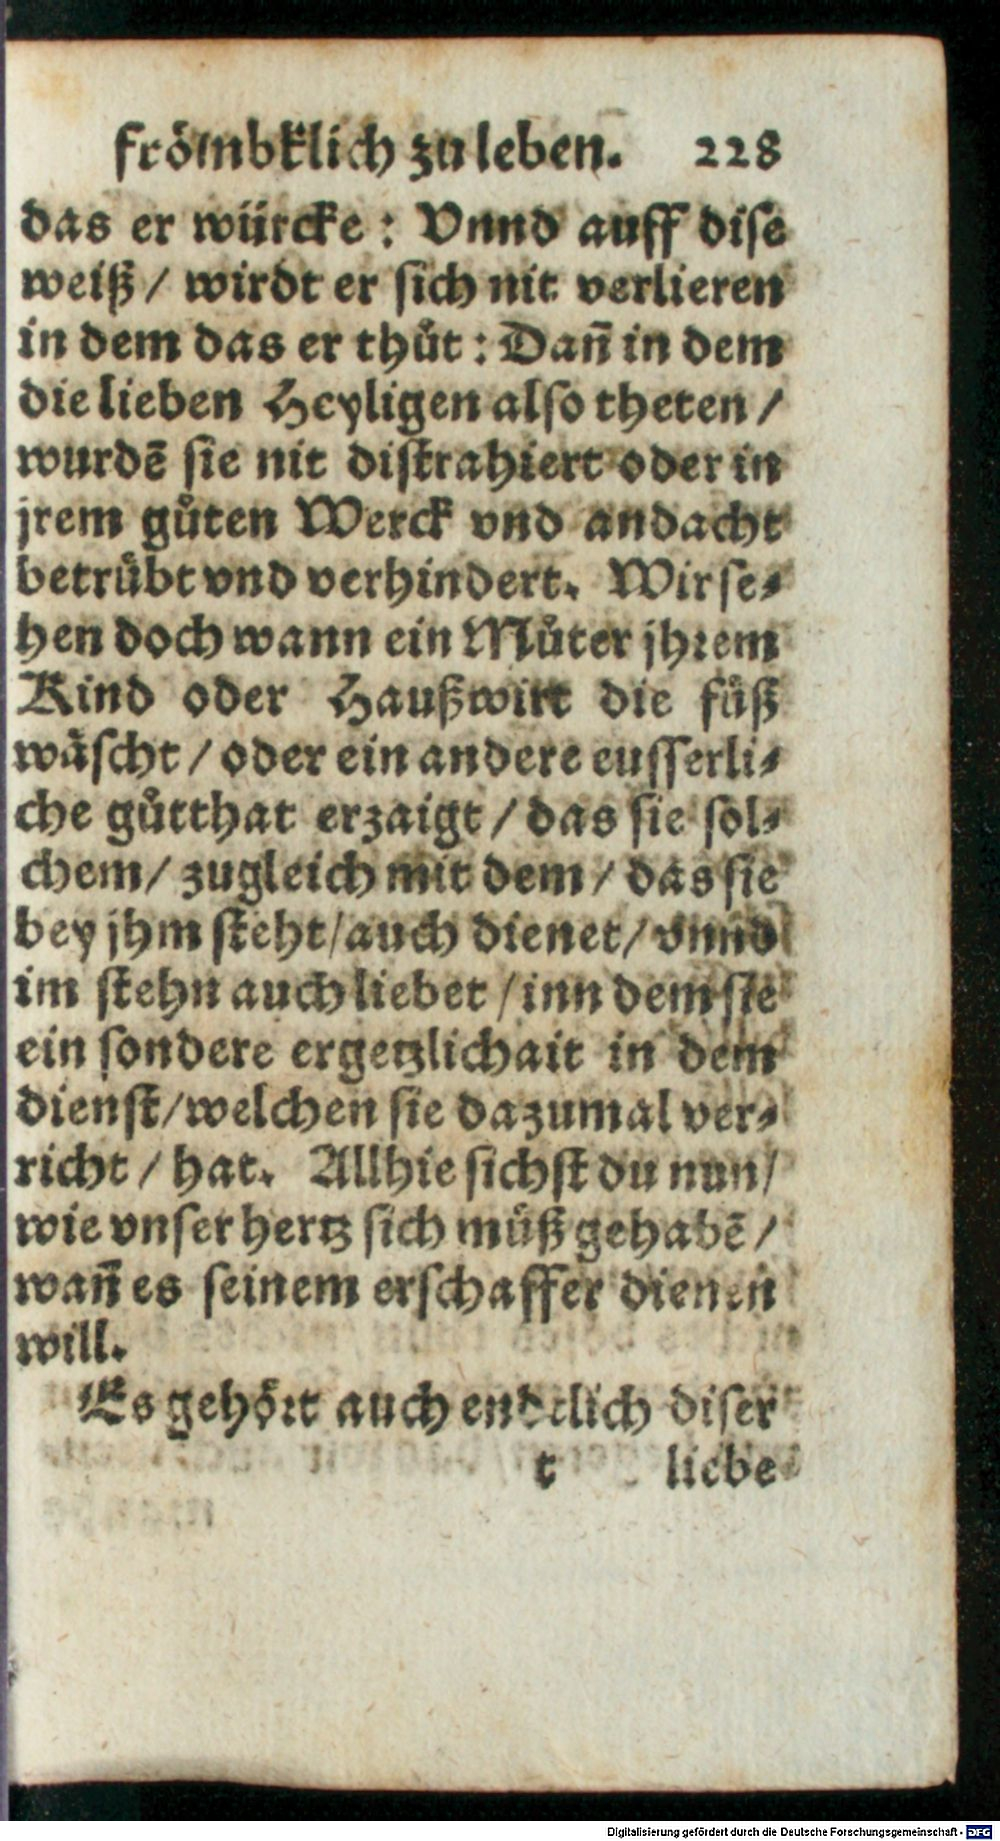 frömbklich zu leben. 228
das er würcke: Vnnd auff dise
weiß / wirdt er sich nit verlieren
in dem das er thůt: Dañ in dem
die lieben Heyligen also theten /
wurdẽ sie nit distrahiert oder in
jrem gůten Werck vnd andacht
betrübt vnd verhindert. Wir se⸗
hen doch wann ein Můter jhrem
Kind oder Haußwirt die füß
wäscht / oder ein andere eusserli⸗
che gůtthat erzaigt / das sie sol⸗
chem / zugleich mit dem / das sie
bey jhm steht / auch dienet / vnnd
im stehn auch liebet / inn dem sie
ein sondere ergetzlichait in dem
dienst / welchen sie dazumal ver⸗
richt / hat. Allhie sichst du nun /
wie vnser hertz sich můß gehabẽ /
wañ es seinem erschaffer dienen
will.
Es gehört auch endtlich diser
t liebe
Digitalisierung gefördert durch die Deutsche Forschungsgemeinschaft - DFG